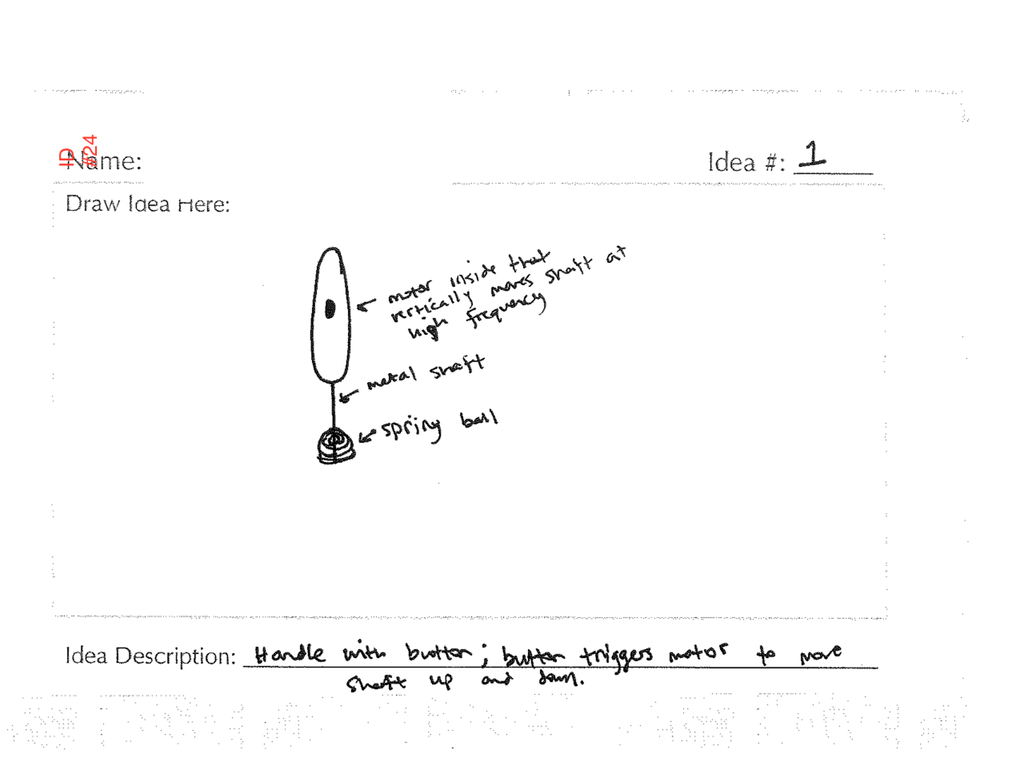 ID #24
Name:
Idea #: 1
Draw Idea Here:
motor inside that
vertically moves shaft at
high frequency
metal shaft
spring ball
Idea Description: Handle with button; button triggers motor to move
shaft up and down.